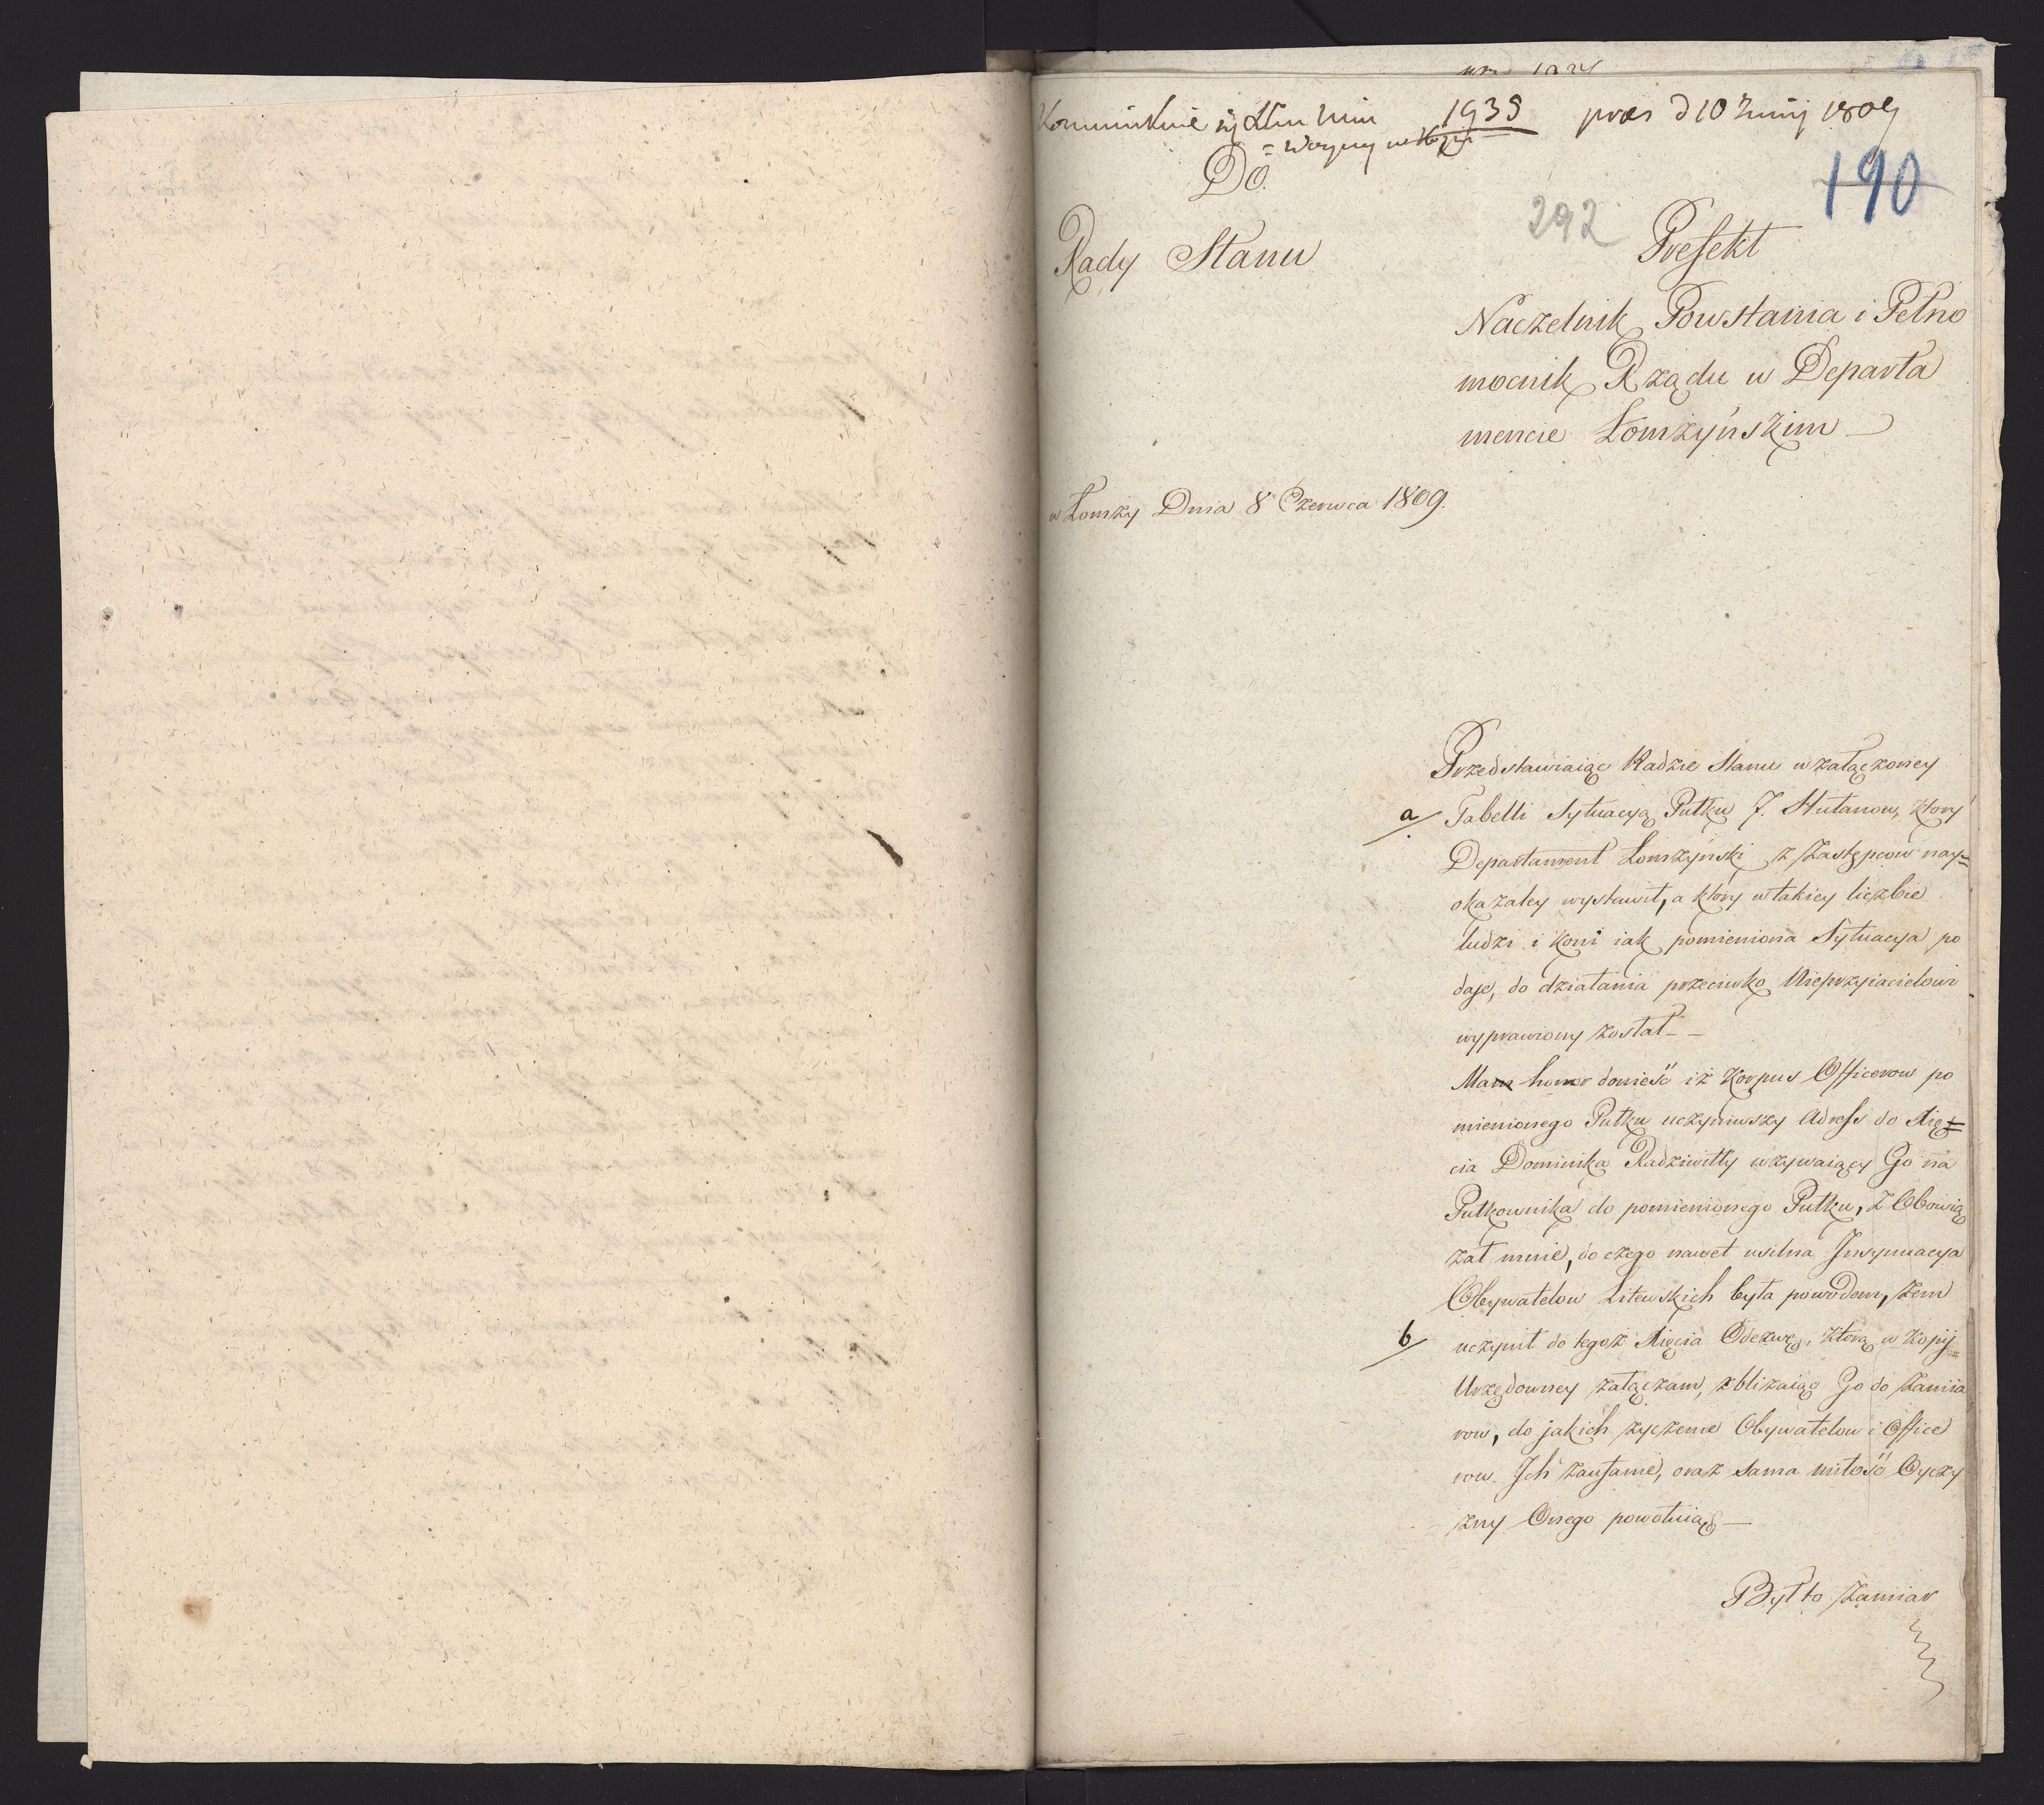 Kommunikuie się 1939 præs d 10 Junij 1809
= Woyny w Kopii
190
292
Do.
Rady Stanu
Prefekt
Naczelnik Powstania i Pełno
mocnik Rządu w Departa
mencie Łomżyńskim —
w Łomży Dnia 8 Czerwca 1809.
Przedstawiaiąc Radzie Stanu w załączoney
a/ Tabelli Sytuacyą Pułku J. Hułanow, ktory
Departament Łomżyński z Zastępcow nay=
okazaley wystawił, a ktory w takiey liczbie
ludzi i koni iak pomieniona Sytuacya po
daje, do działania przeciwko Nieprzyiacielowi
wyprawiony został —
Mam honor donieść iż Korpus Officerow po
mienionego Pułku uczyniwszy Adress do Xię=
cia Dominika Radziwiłły wzywaiący Go na
Pułkownika do pomienionego Pułku, z Obowią
zał mnie, do czego nawet usilna Jnsynuacya
Obywatelow Litewskich była powodem, żem
b/ uczynił do tegoż Xięcia Odezwę, ktorą w kopij=
Urzędowney załączam, zbliżaiąc Go do zamia
row, do jakich życzenie Obywatelow i Office
row. Jch zaufanie, oraz sama miłość Oyczy
zny Onego powołuią —
Był to zamiar